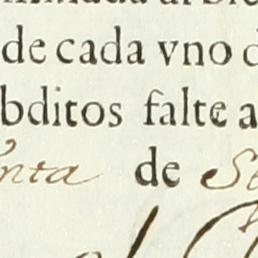 de cada vno d
bditos falte a
nta de Se